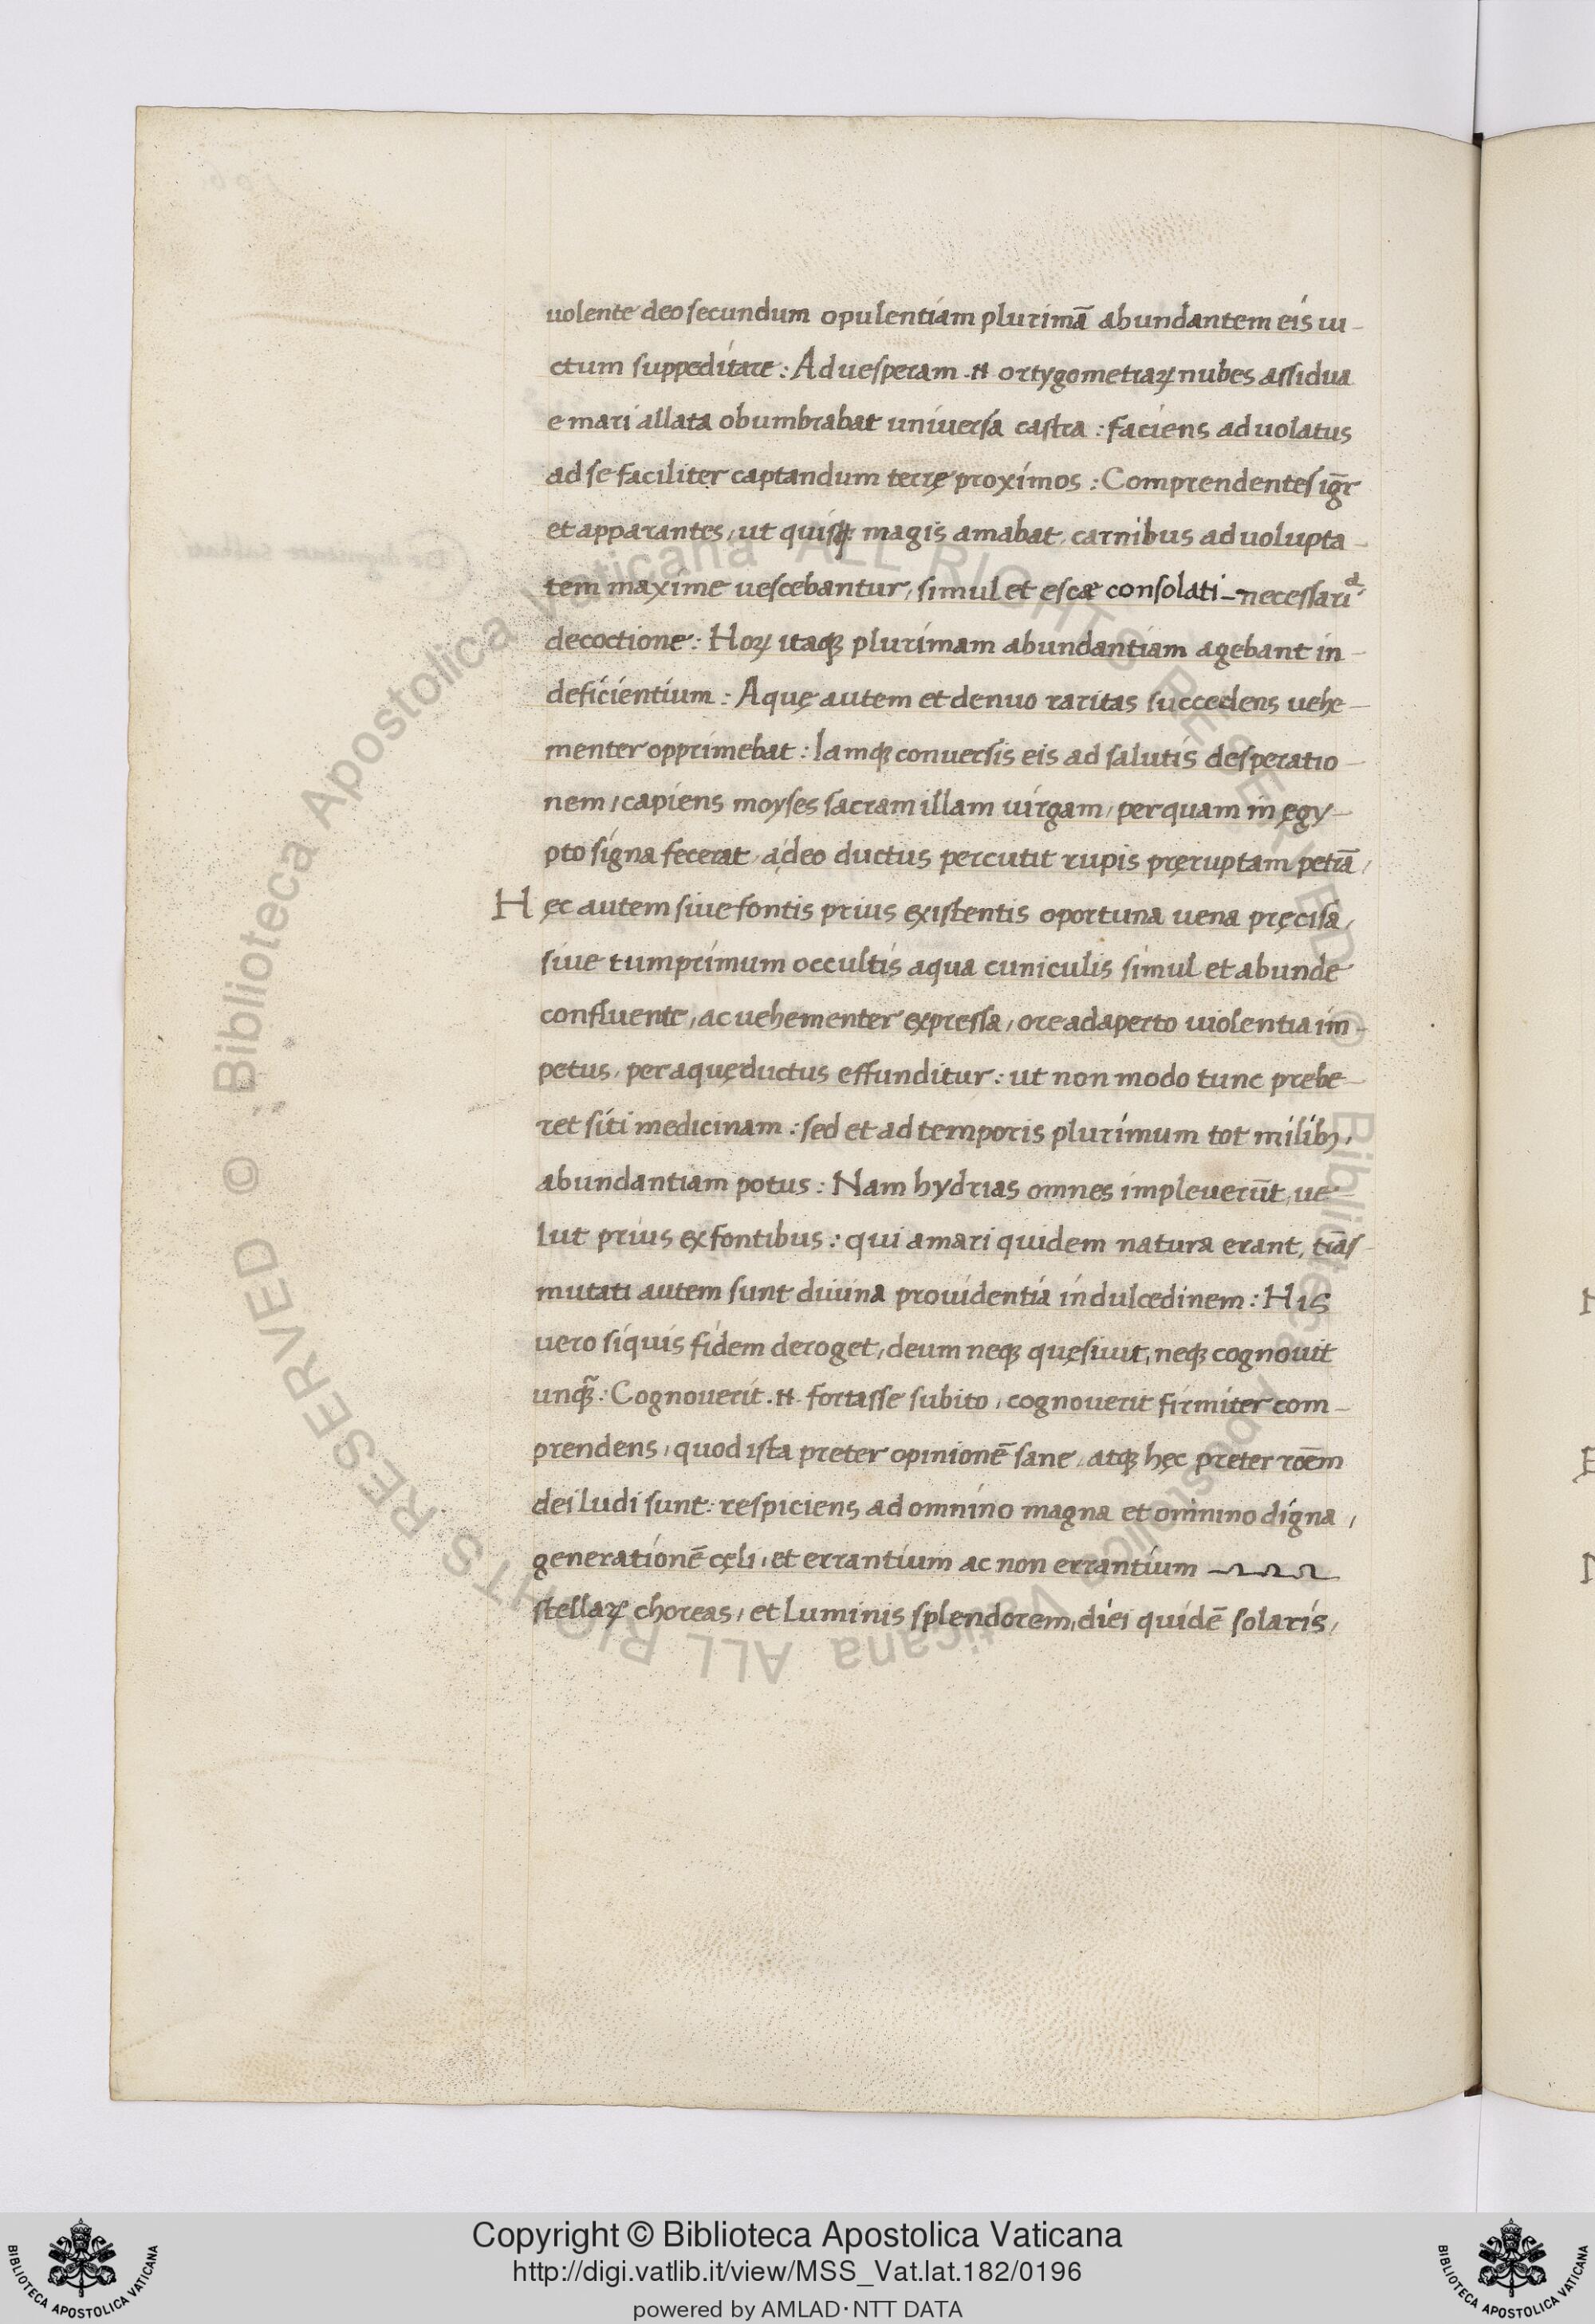 uolente deo secundum opulentiam plurimā abundantem eis ui-
ctum suppeditare: Ad uesperam .n. ortygometraꝝ nubes assidua
e mari allata obumbrabat universa castra: faciens ad uolatus
ad se faciliter captandum terrę proximos: Comprendentes igr̄
et apparantes, ut quisq; magis amabat, carnibus ad uolupta-
tem maxime uescebantur, simul et escæ consolati-necessari
decoctione: Hoꝝ itaq; plurimam abundantiam agebant in-
deficientium: Aquę autem et denuo raritas succedens uehe-
menter opprimebat: Iamq; conuersis eis ad salutis desperatio-
nem, capiens moyses sacram illam uirgam, per quam in ęgy-
pto signa fecerat, a deo ductus percutit rupis pręruptam petrā,
Hęc autem siue fontis prius existentis oportuna uena pręcisa,
siue tum primum occultis aqua cuniculis simul et abunde
confluente, ac uehementer expressa, ore adaperto uiolentia im-
petus, per aquęductus effunditur: ut non modo tunc prebe-
ret siti medicinam: sed et ad temporis plurimum tot milibꝫ,
abundantiam potus: Nam hydrias omnes impleuerūt, ue-
lut prius ex fontibus: qui amari quidem natura erant, trās-
mutati autem sunt diuina prouidentia in dulcedinem: His
uero siquis fidem deroget, deum neq; quęsiuit, neq; cognouit
unq̃: Cognouerit .n. fortasse subito, cognouerit firmiter com-
prendens, quod ista preter opinionē sane, atq; hęc preter roēm
dei ludi sunt: respiciens ad omnino magna et omnino digna,
generationē cęli, et errantium ac non errantium
stellaꝝ choreas, et luminis splendorem, diei quidē solaris,
Copyright © Biblioteca Apostolica Vaticana
http://digi.vatlib.it/view/MSS_Vat.lat.182/0196
powered by AMLAD·NTT DATA